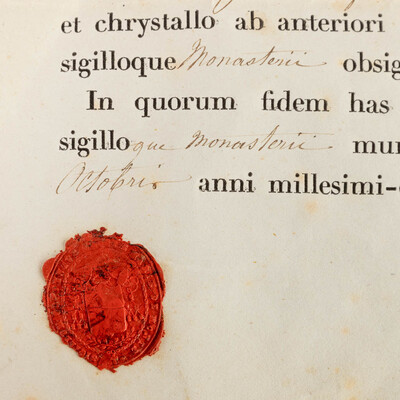 et chrystallo ab anteriori
sigilloque Monasterii obsig
In quorum fidem has
sigilloque Monasterii mun
Octobris anni millesimi-